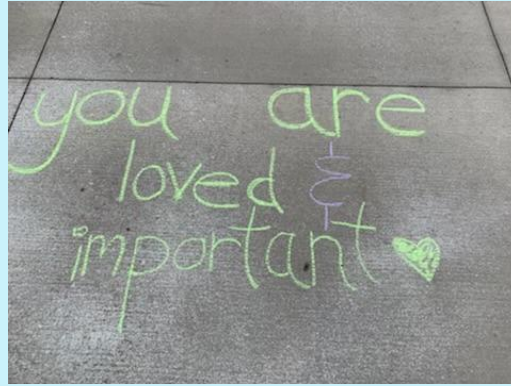 you are
loved &
important